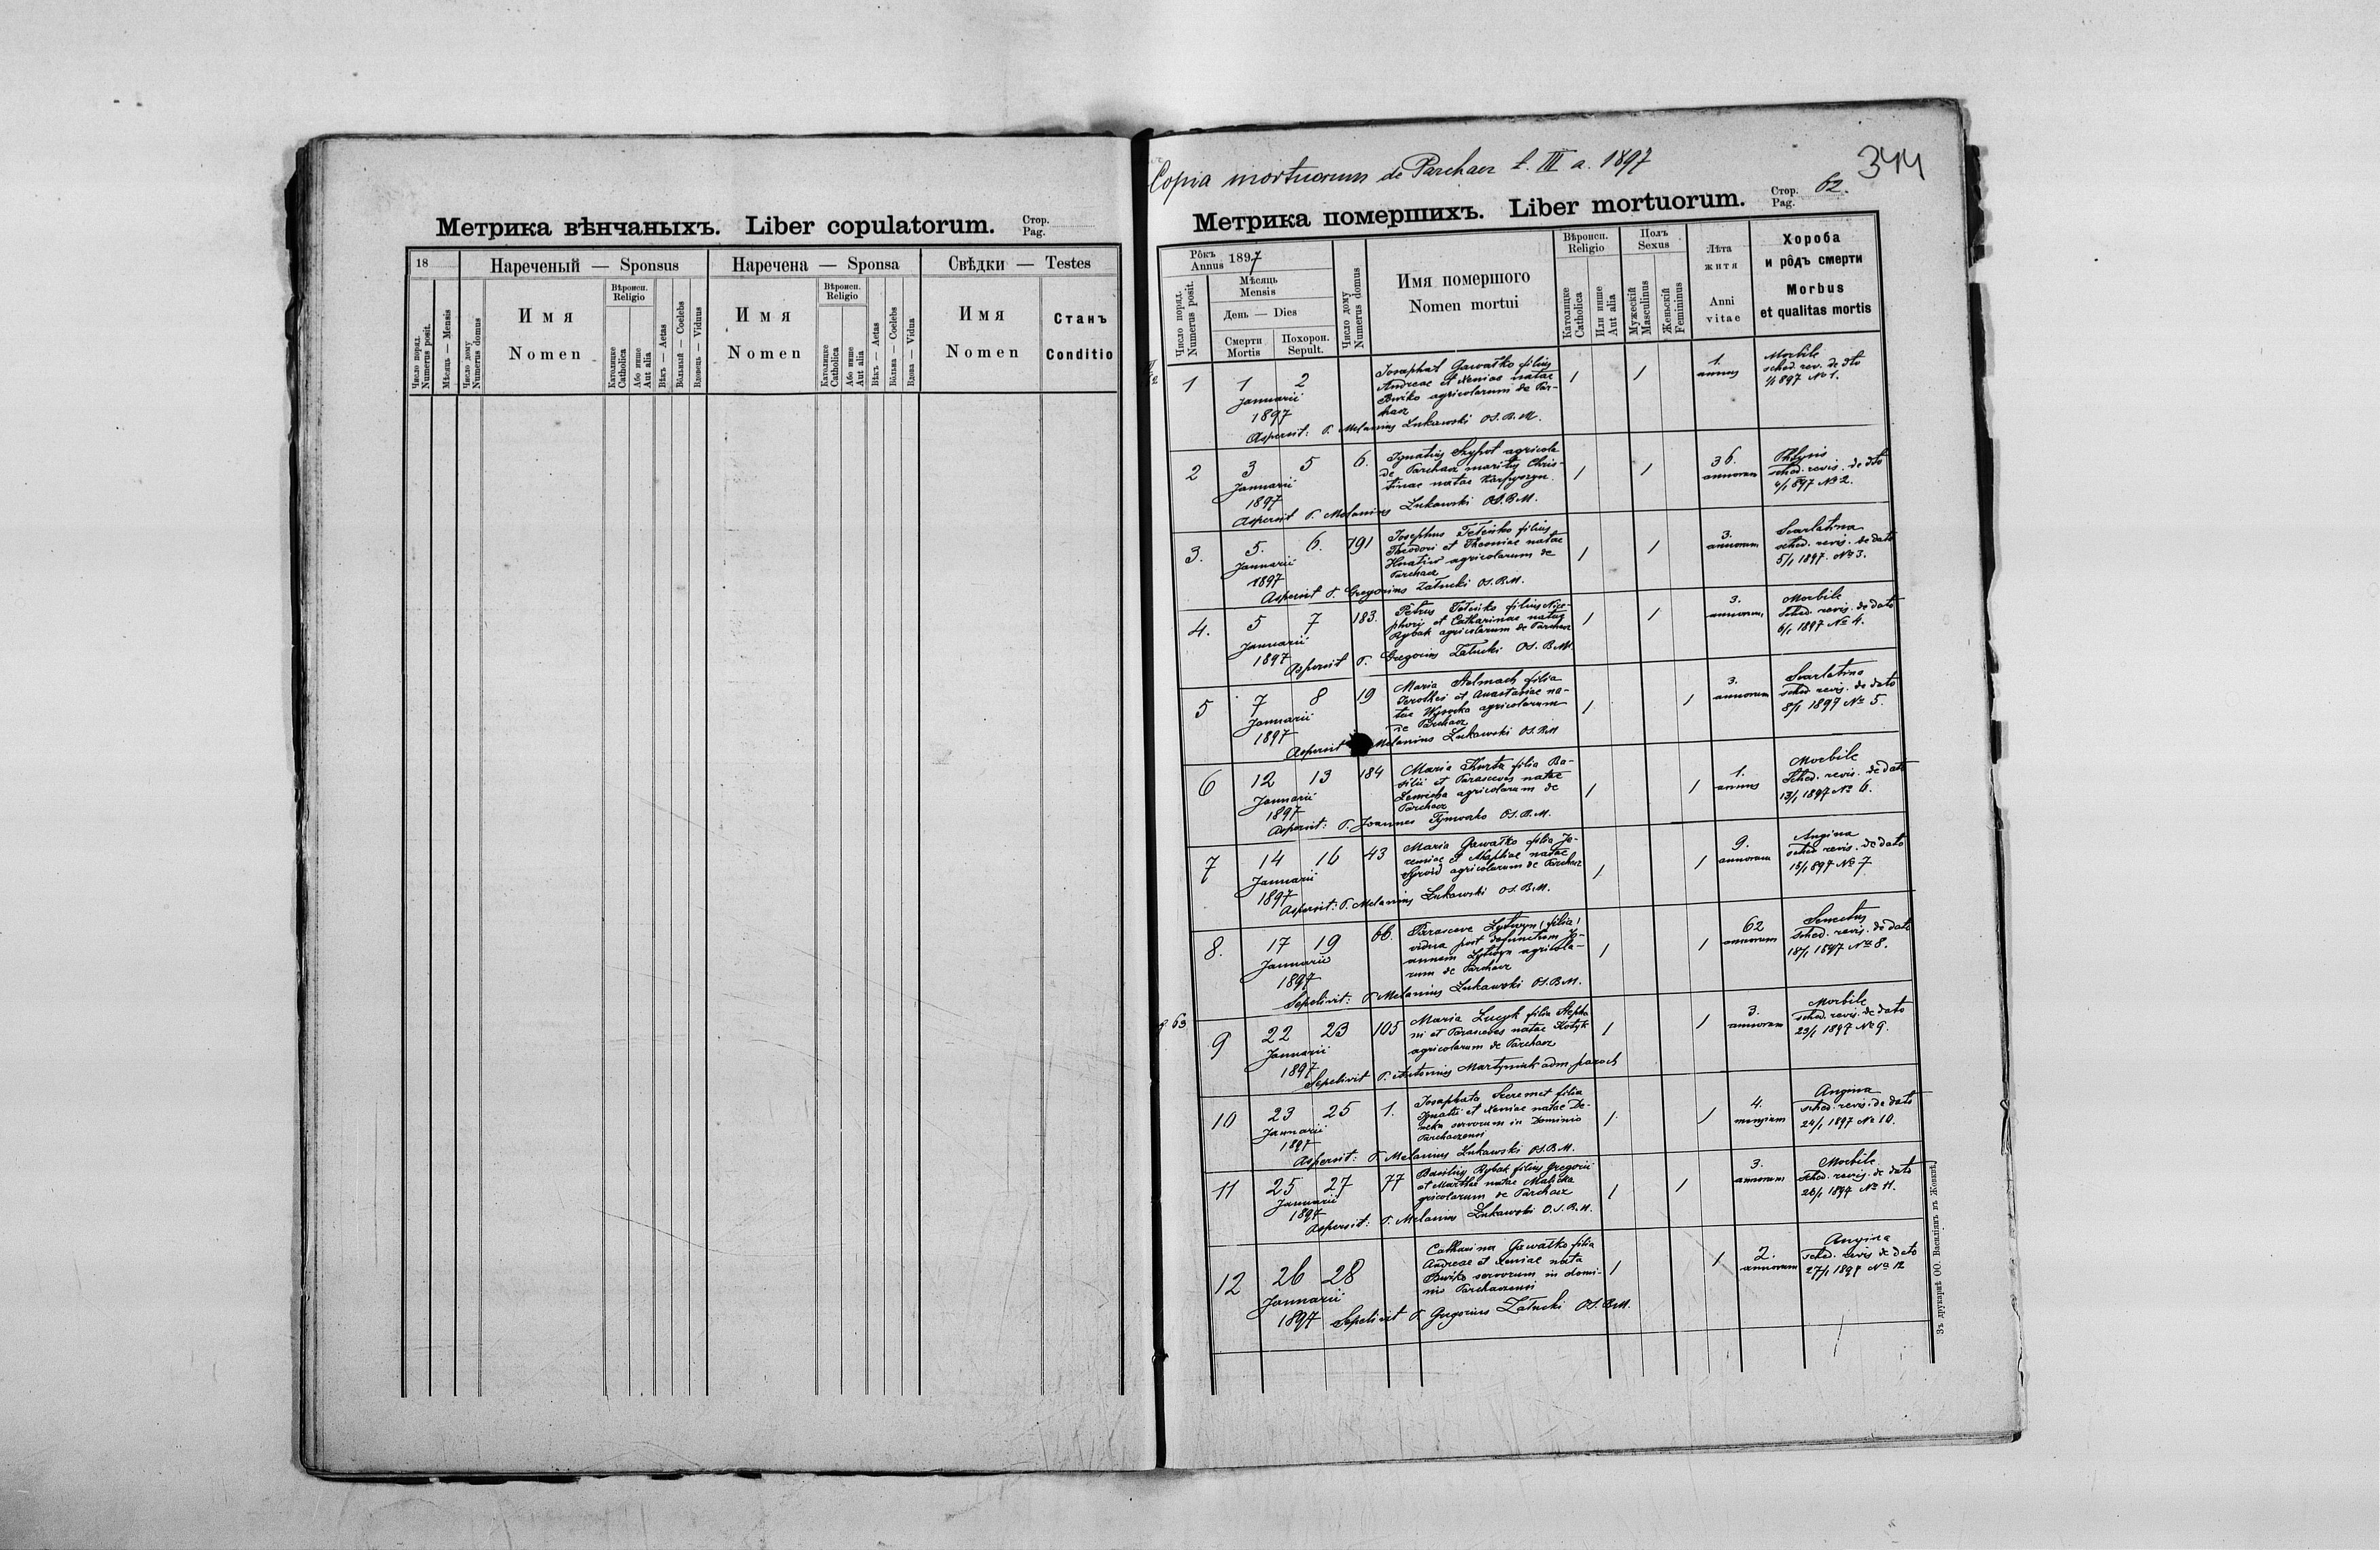 Метрика вѣнчаныхъ. Liber copulatorum.
Стор.
Pag.
18
Нареченый — Sponsus
Наречена — Sponsa
Свѣдки — Testes
Число поряд.
Numerus posit.
Мѣсяць — Mensis
Число дому
Numerus domus
Имя
Nomen
Вѣроисп.
Religio
Католицке
Catholica
Або инше
Aut alia
Вѣкъ — Aetas
Вôльный — Coelebs
Вдовець — Viduus
Имя
Nomen
Вѣроисп.
Religio
Католицке
Catholica
Або инше
Aut alia
Вѣкъ — Aetas
Вôльна — Coelebs
Вдова — Vidua
Имя
Nomen
Станъ
Conditio
Copia mortuorum de Parchacz t. III a. 1897
344
Метрика помершихъ. Liber mortuorum.
Стор.
Pag.
62.
Рôкъ
Annus 1897
Число поряд.
Numerus posit.
Мѣсяць
Mensis
День — Dies
Смерти
Mortis
Похорон.
Sepult.
Число дому
Numerus domus
Имя помершого
Nomen mortui
Вѣроисп.
Religio
Католицке
Catholica
Или инше
Aut alia
Полъ
Sexus
Мужескій
Masculinus
Женьскій
Femininus
Лѣта
житя
Anni
vitae
Хороба
и рôдъ смерти
Morbus
et qualitas mortis
1 1 2 Josaphat Gawałko filius 1 1 1. Morbile
Januarii Andreae et Xeniae natae annus sched. rev. de dto
1897 Bwiko agricolarum de Par- 1/1 897 No 1.
chacz
Aspersit: P. Melanius Łukawski OS.B.M.
2 3 5 6. Ignatius agricola 1 1 36 Phtysis
Januarii de Parchacz maritus Chris- annorum sched. revis. de dto
1897 tinae natae 4/1 897 No 2.
Aspersit P. Melanius Łukawski OS.BM.
3. 5. 6. 191 Josephus Teteńko filius 1 1 3. Scarlatina
Januarii Theodori et natae annorum sched. revis. de dato
1897 Hnatiw agricolarum de 5/1 1897 No 3.
Parchacz
Aspersit P. Gregorius Załucki OS.BM.
4. 5 7 183. Petrus Teteńko filius Nice- 1 1 3. Morbile
Januarii phori et Catharinae natae annorum sched. revis. de dato
1897 Rybak agricolarum de Parchacz 6/1 1897 No 4.
Aspersit P. Gregorius Załucki OS. BM.
5 7 8 19 Maria Stelmach filia 1 1 3. Scarlatina
Januarii Jerothei et Anastasiae na- annorum sched revis. de dato
1897 tae Wysocka agricolarum 8/1 1897 No 5.
de Parchacz
Aspersit Melanius Łukawski OS.BM
6 12 13 184 Maria filia Ba- 1 1 1. Morbile
Januarii silii et Parasceves natae annus Sched. revis. de dato
1897 agricolarum de 13/1 1897 No 6.
Parchacz
Aspersit: P. Joannes Tymoczko OS.B.M.
7 14 16 43 Maria Gawałko filia Je- 1 1 9. Angina
Januarii remiae et natae annorum sched revis. de dato
1897 agricolarum de Parchacz 15/1 897 No 7
Aspersit: P. Melanius Łukawski OS.B.M.
8. 17 19 66. Parasceve Łytwyn (filia) 1 1 62 Senectus
Januarii vidua post defunctum Jo- annorum sched. revis. de dato
1897 annem Łytwyn agricola- 18/1 1897 No 8.
rum de Parchacz
Sepelivit: P Melanius Łukawski OS.BM.
p 63
9 22 23 105 Maria Łucyk filia Stepha 1 1 3. Morbile
Januarii ni et Parasceves natae Kotyk annorum sched. revis. de dato
1897 agricolarum de Parchacz 23/1 1897 No 9.
Sepelivit P. Antonius Martyniuk adm. paroch
10 23 25 1. Josaphata Szeremet filia 1 1 4. Angina
Januarii Ignatii et Xeniae natae De- mensium sched. revis. de dato
1897 servorum in Dominio 24/1 1897 No 10.
Parchaczensi
Aspersit: P Melanius Łukawski OS.B.M.
11 25 27 77 Basilius Rybak filius Gregorii 1 1 3. Morbile
Januarii et Marthae natae Malicka annorum sched. revis. de dato
1897 gricolarum de Parchacz 26/1 1897 No 11.
Aspersit: P. Melanius Łukawski O.S.B.M.
12 26 28 Catharina Gawałko filia 1 1 2. Angina
Januarii Andreae et Xeniae nata annorum sched. revis de dato
1897 Bwiko servorum in domi- 27/1 1897 No 12
nio Parchaczensi
Sepelivit P. Gregorius Załucki OS.BM.
Зъ друкарнѣ ОО. Василіянъ въ Жовквѣ.